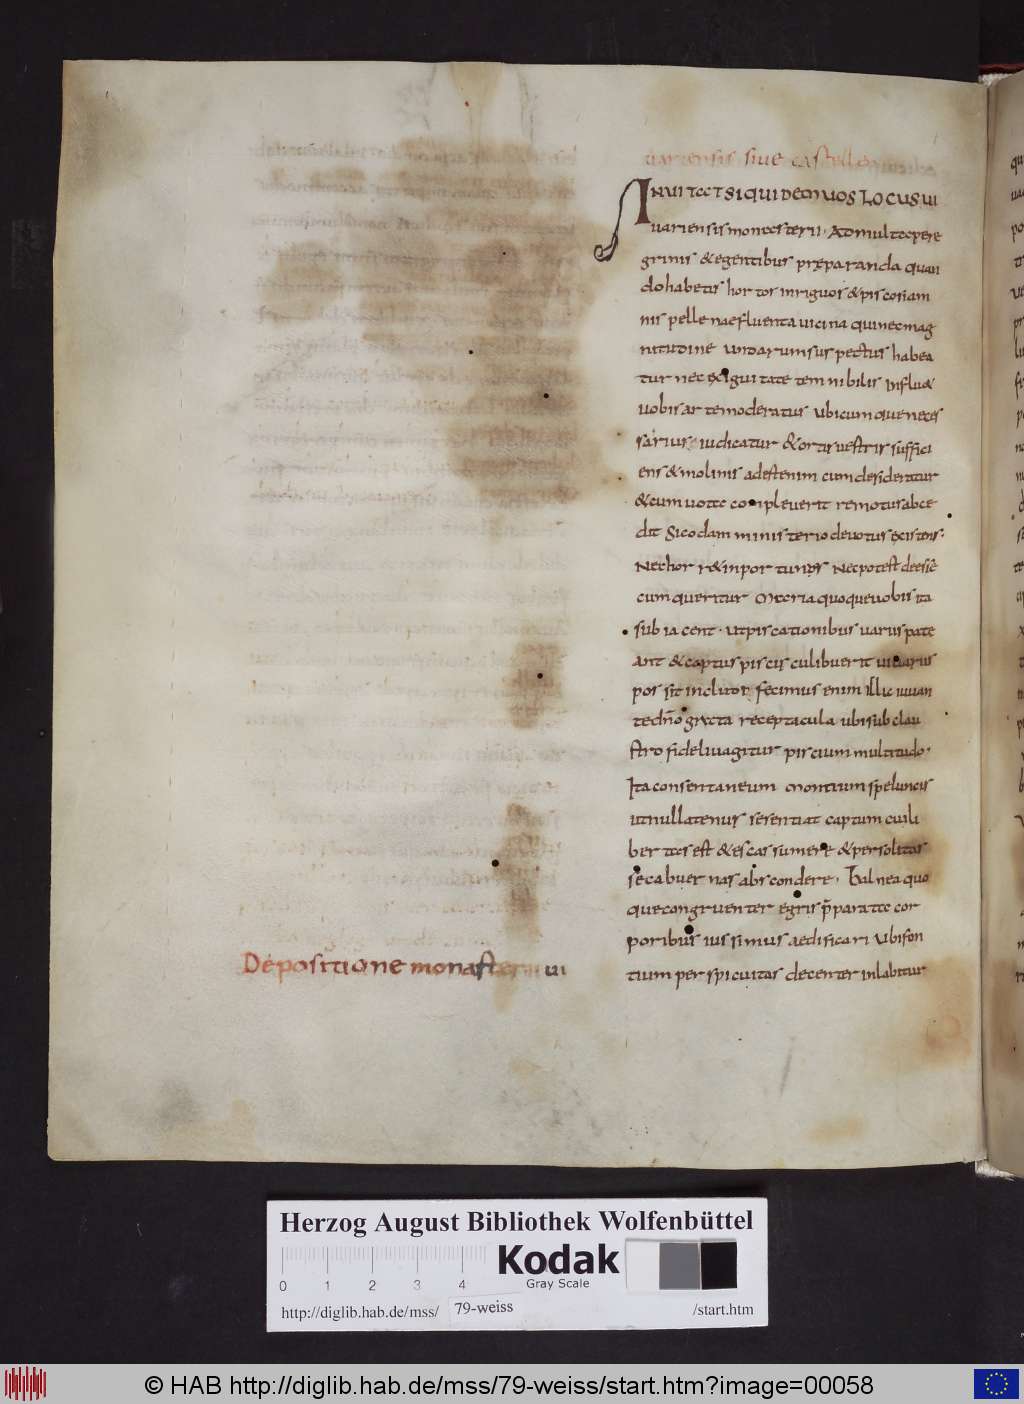 De positione monaster ui
uariensis siue castell
INuitat siquidem uos locus ui
uariensis monasterii · Ad multa pere
grinis & egentibus pręparanda quan
do habetis hortos inriguos & piscosi am
nis pellenae fluenta uicina qui nec mag
nitudine undarum suspectus habea
tur nec exiguitate temnibilis Influ&
uobis arte moderatus ubicumque neces
sarius iudicatur & ortis uestris suffici
ens & molinis adest enim cum desideratur
& cum uota compleuerit remotus abce
dit Sic odam ministerio deuotus existens·
Nec horr& inportunus Nec potest deesse
cum queritur Maria quoque uobis ita
subiacent · ut piscationibus uariis pate
ant & captus piscis cu libuerit uiuariis
possit includor fecimus enim illic iuuan
te dño grata receptacula ubi sub clau
stro fideli uagitur piscium multitudo·
Ita consentaneum montium speluncis
ut nullatenus se sentiat captum cui li
ber tas est & escas sumere & per solitas
se cabuernas abscondere · Balnea quo
que congruenter egris p̄parata cor
poribus iussimus aedificari ubi fon
tium perspicuitas decenter inlabitur
Herzog August Bibliothek Wolfenbüttel
0 1 2 3 4
Kodak
Gray Scale
http://diglib.hab.de/mss/ 79-weiss /start.htm
© HAB http://diglib.hab.de/mss/79-weiss/start.htm?image=00058